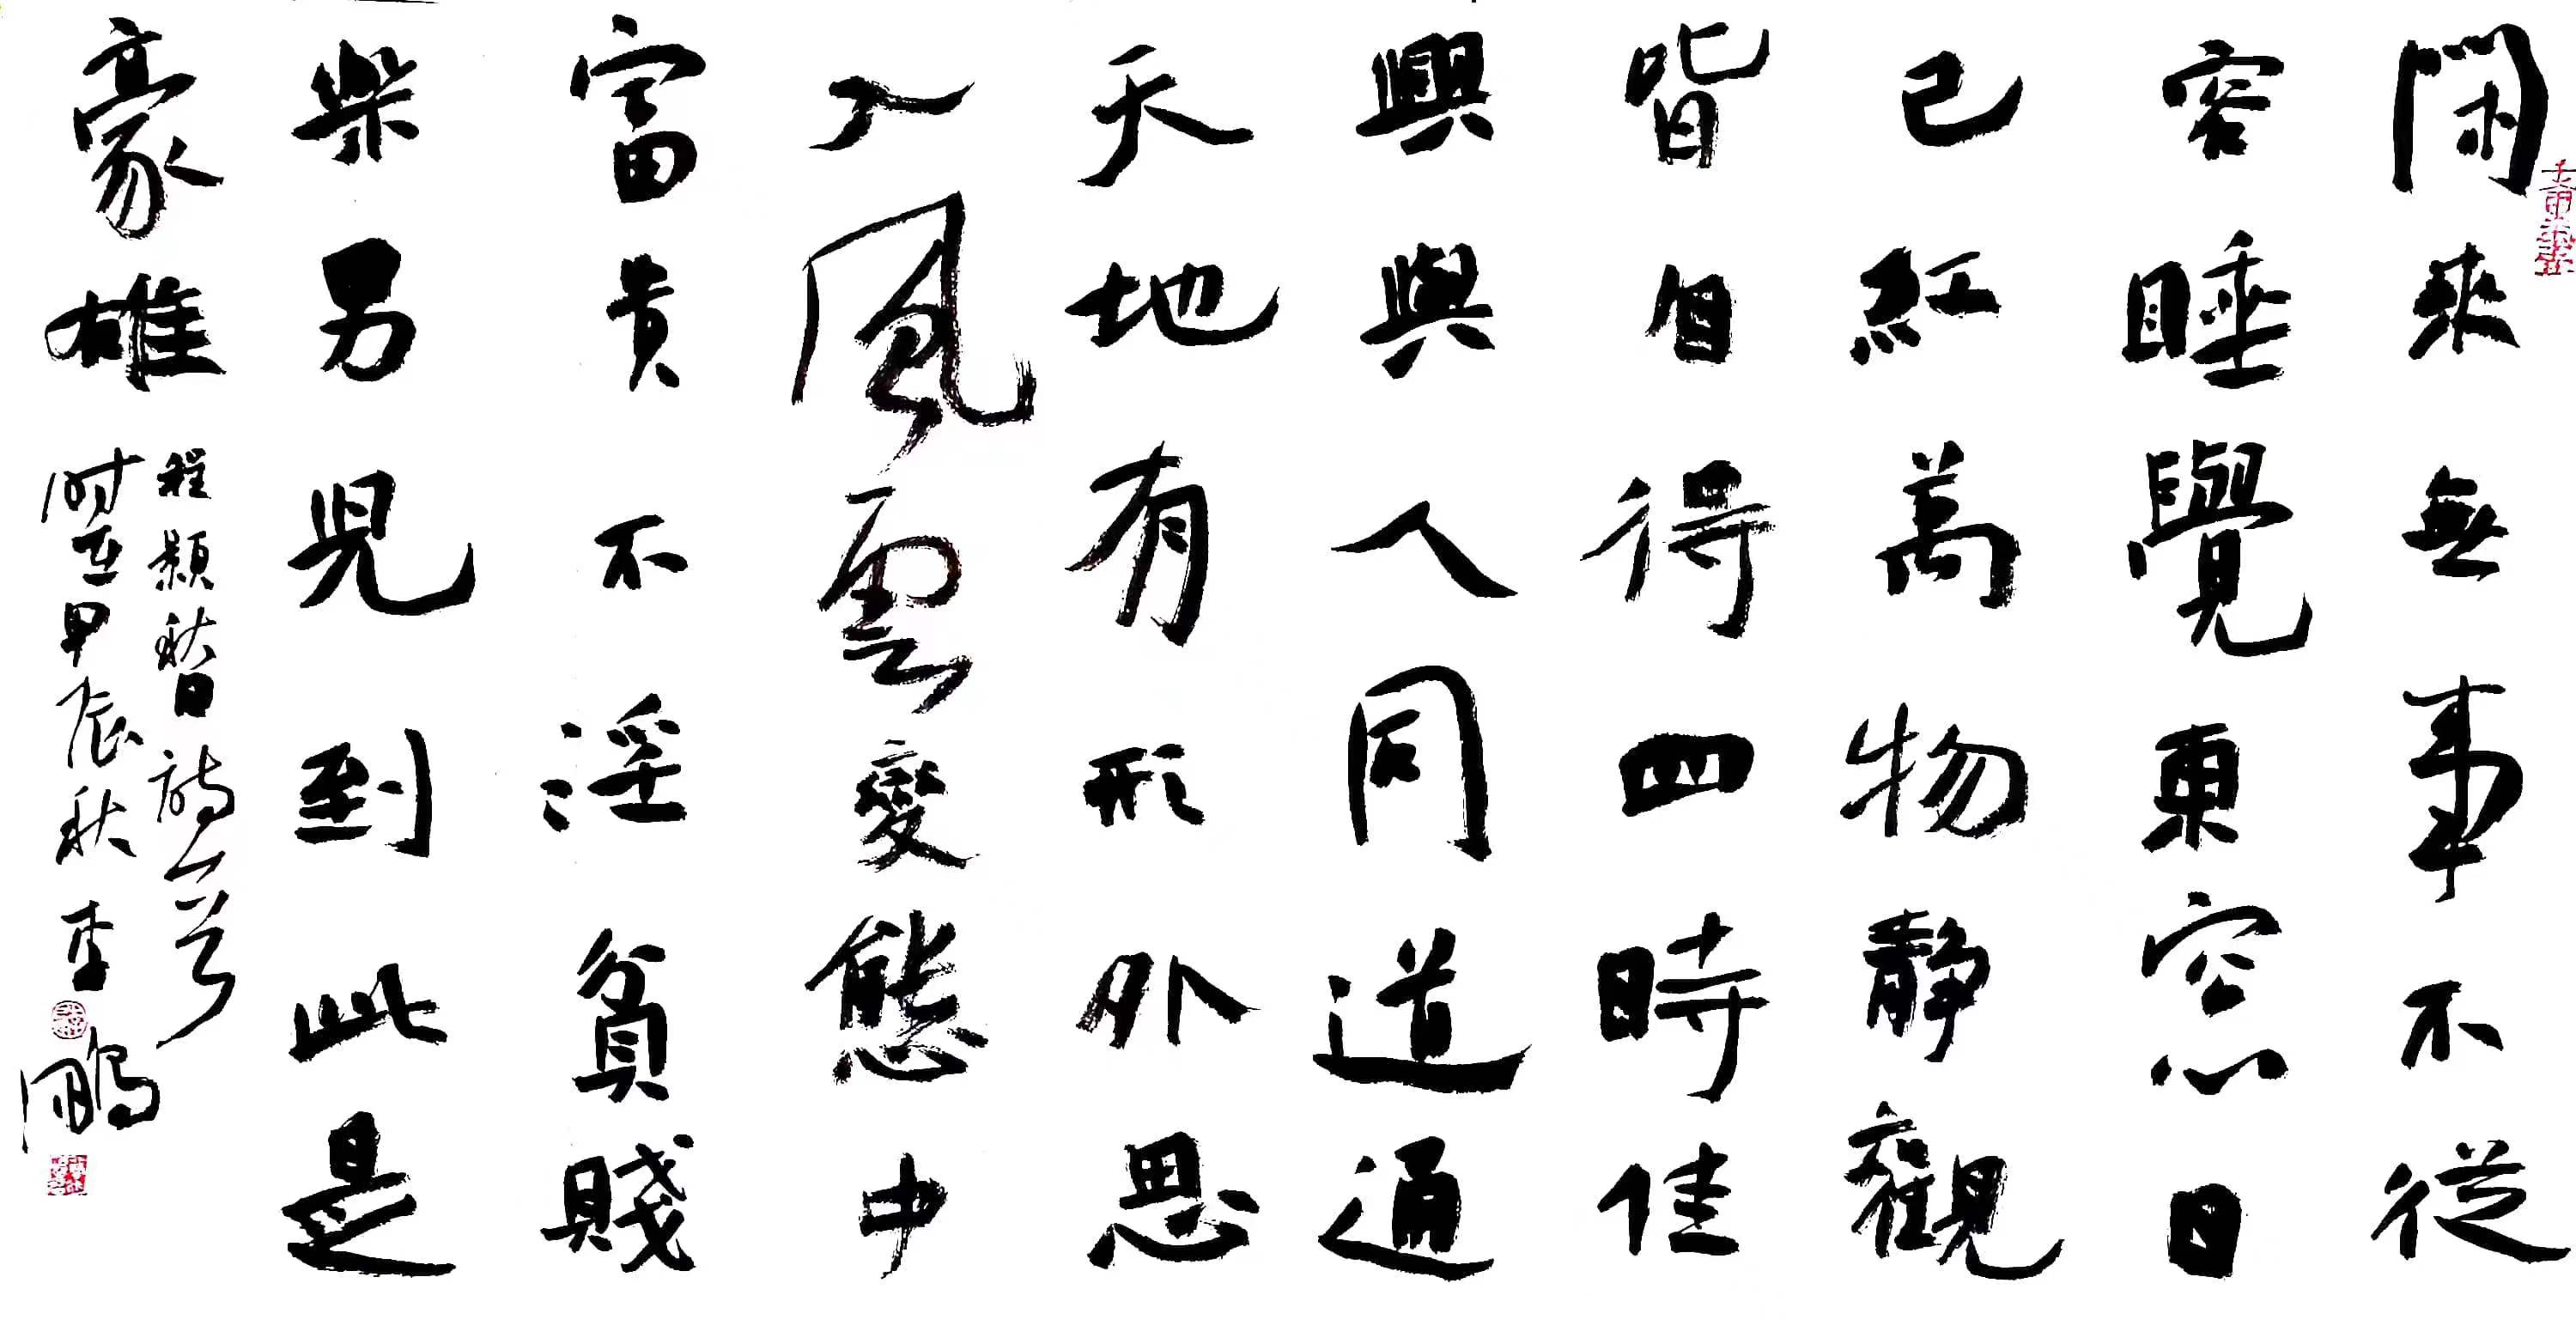 閑來無事不從
容睡覺東窓日
已紅萬物靜觀
皆自得四時佳
興與人同道通
天地有形外思
入風雲變態中
富貴不淫貧賤
樂男兒到此是
豪雄
程顥秋日詩一首
时在甲辰秋李鵬